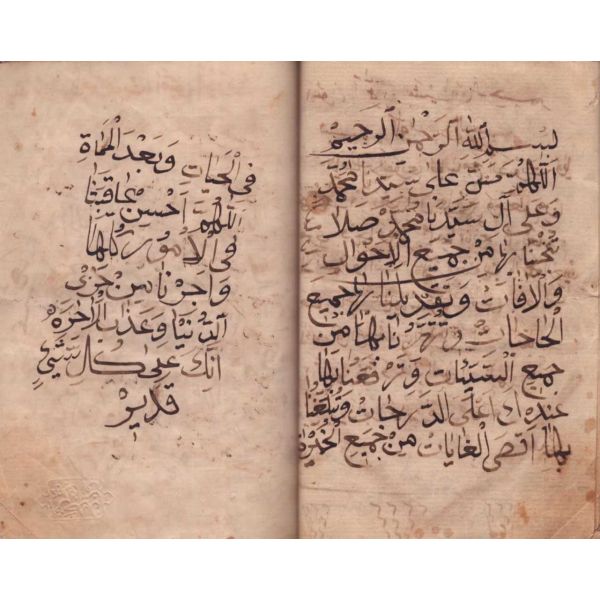 بسم الله الرحمن الرحيم
اللهم صل على سيدنا محمد
وعلى آل سيدنا محمد صلات
تنجينا بها من جميع الاحوال
والافات وتقضيلنا بها جميع
الحاجات وتطهرنا بها من
جميع السيئات وترفعنا بها
عندك اعلى الدرجات وتبلغنا
بها اقصى الغايات من جميع الخيرات
في الحيات وبعد الممات
اللهم احسن عاقبتنا
في الامور كلها
واجرنا من خزي
الدنيا وعذاب الاخره
انك على كل شيئ
قدير